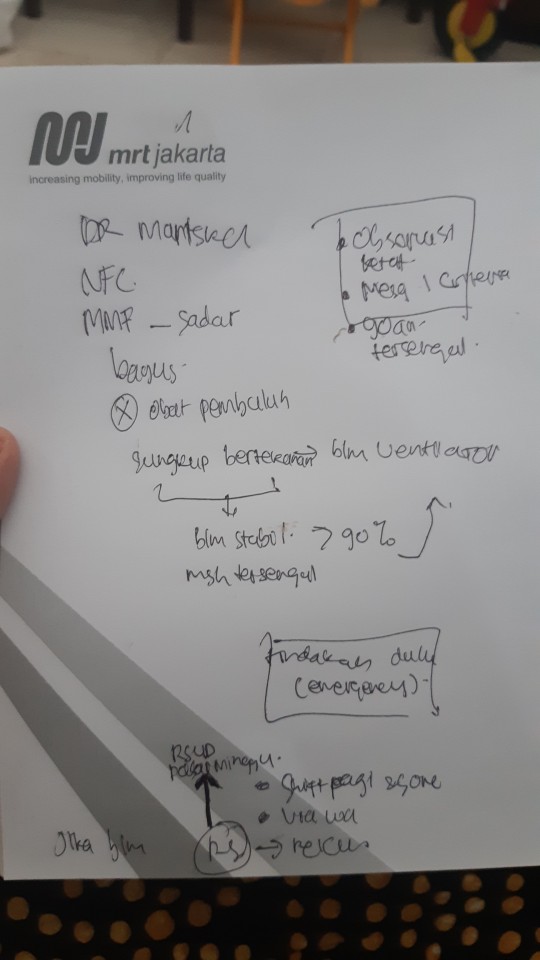 mrt jakarta
increasing mobility, improving life quality
DR
NFC.
MMF - sadar
bagus.
obat pembuluh
sungkup bertekanan → blm ventilator
blm stabil. > 90%
msh tersengal
• Observasi
ketat.
• Mesa | Criteria
• goan
tersengal.
tindakan dulu
(emergency)
RSUD
pasar minggu.
• Shift pagi & sore
• via wa
Jika blm RS →